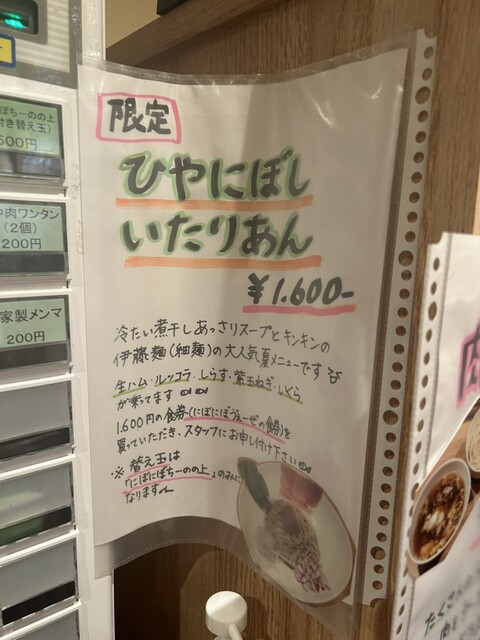 限定
ひやにぼし
いたりあん
¥1.600-
冷たい煮干しあっさりスープとキンキンの
伊藤麺(細麺)の大人気夏メニューです
生ハム・ルッコラ・しらす・紫玉ねぎ・いくら
が乗ってます
1.600円の食券(にぼにぼうぇーぜの食券)を
買っていただき、スタッフにお申し付け下さい
※替え玉は
「にぼにぼちーのの上」のみに
なります
ぼちーのの上
付き替え玉)
500円
肉ワンタン
(2個)
200円
家製メンマ
200円
肉